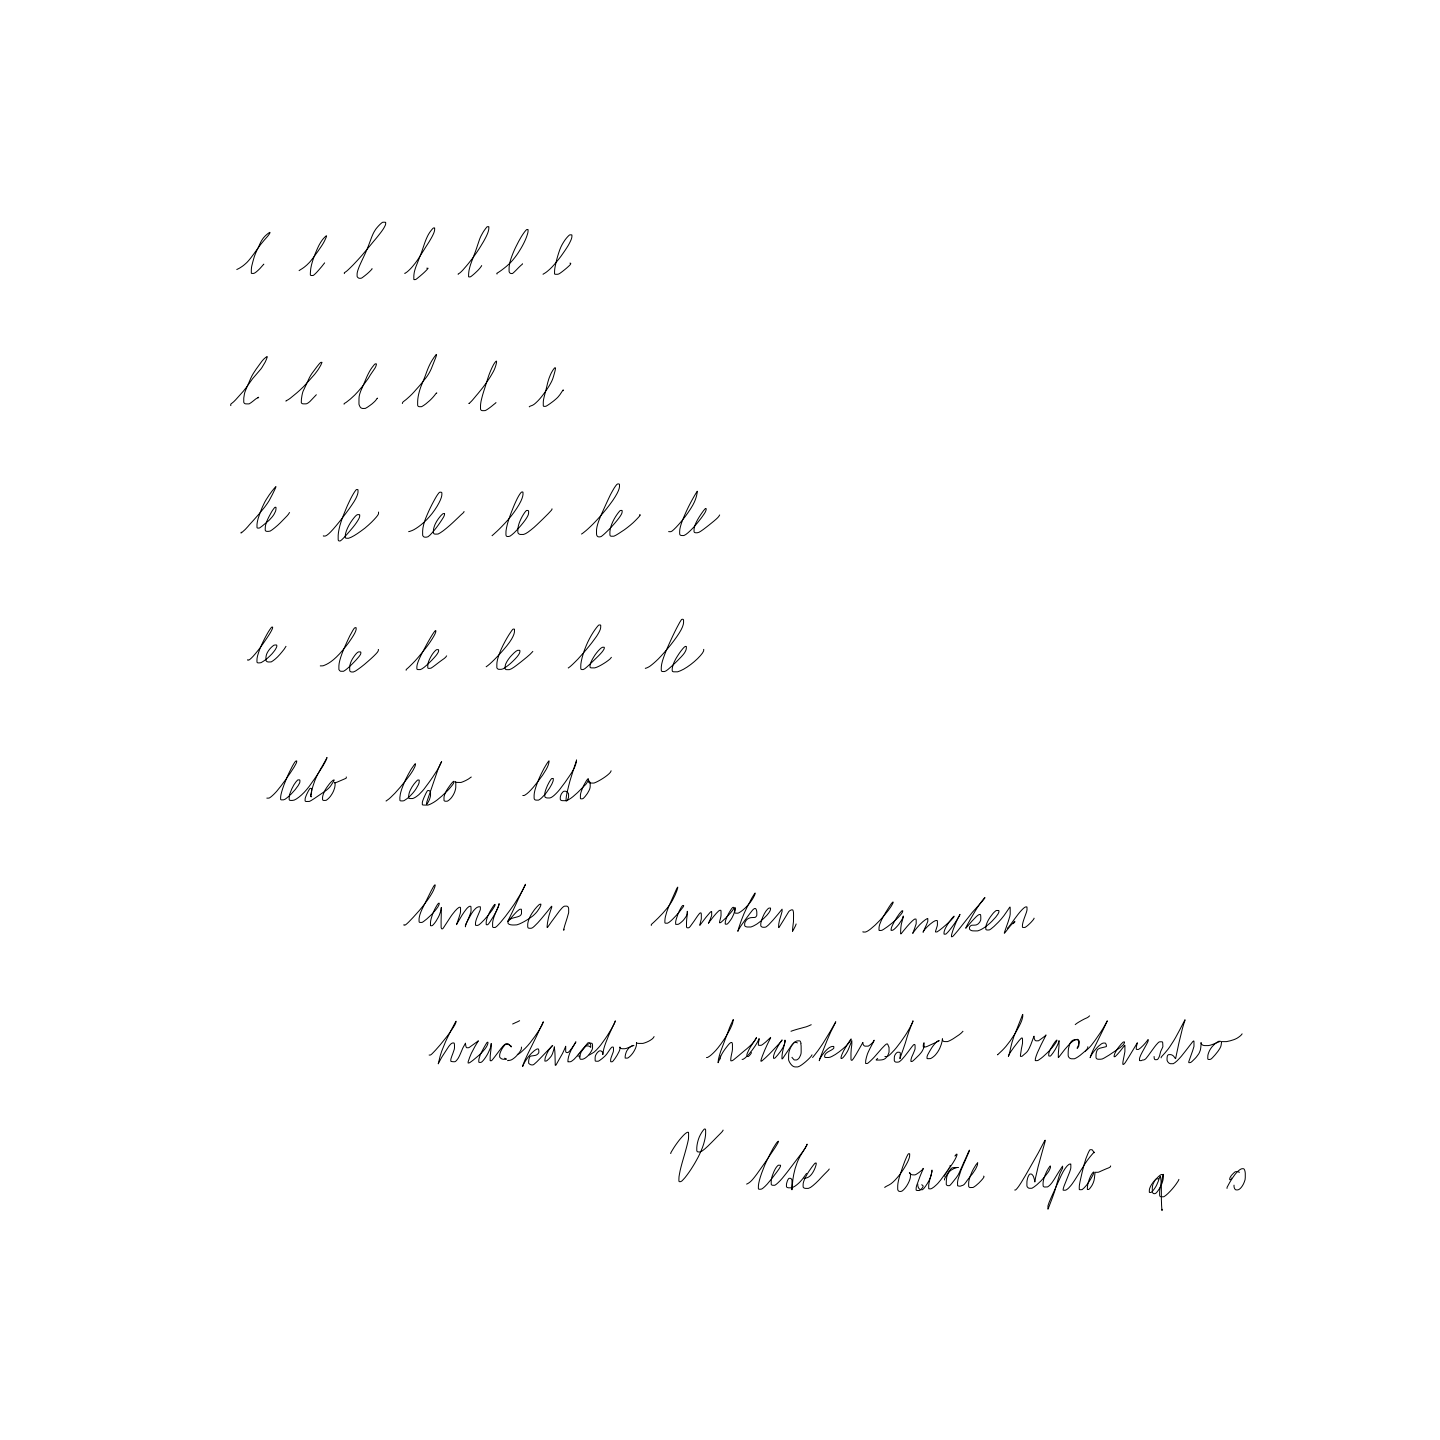 l l l l l l l
l l l l l l
le le le le le le
le le le le le le
leto leto leto
lamaken lamoken lamaken
hračkarstvo hračkarstvo hračkarstvo
V lete bude teplo a o